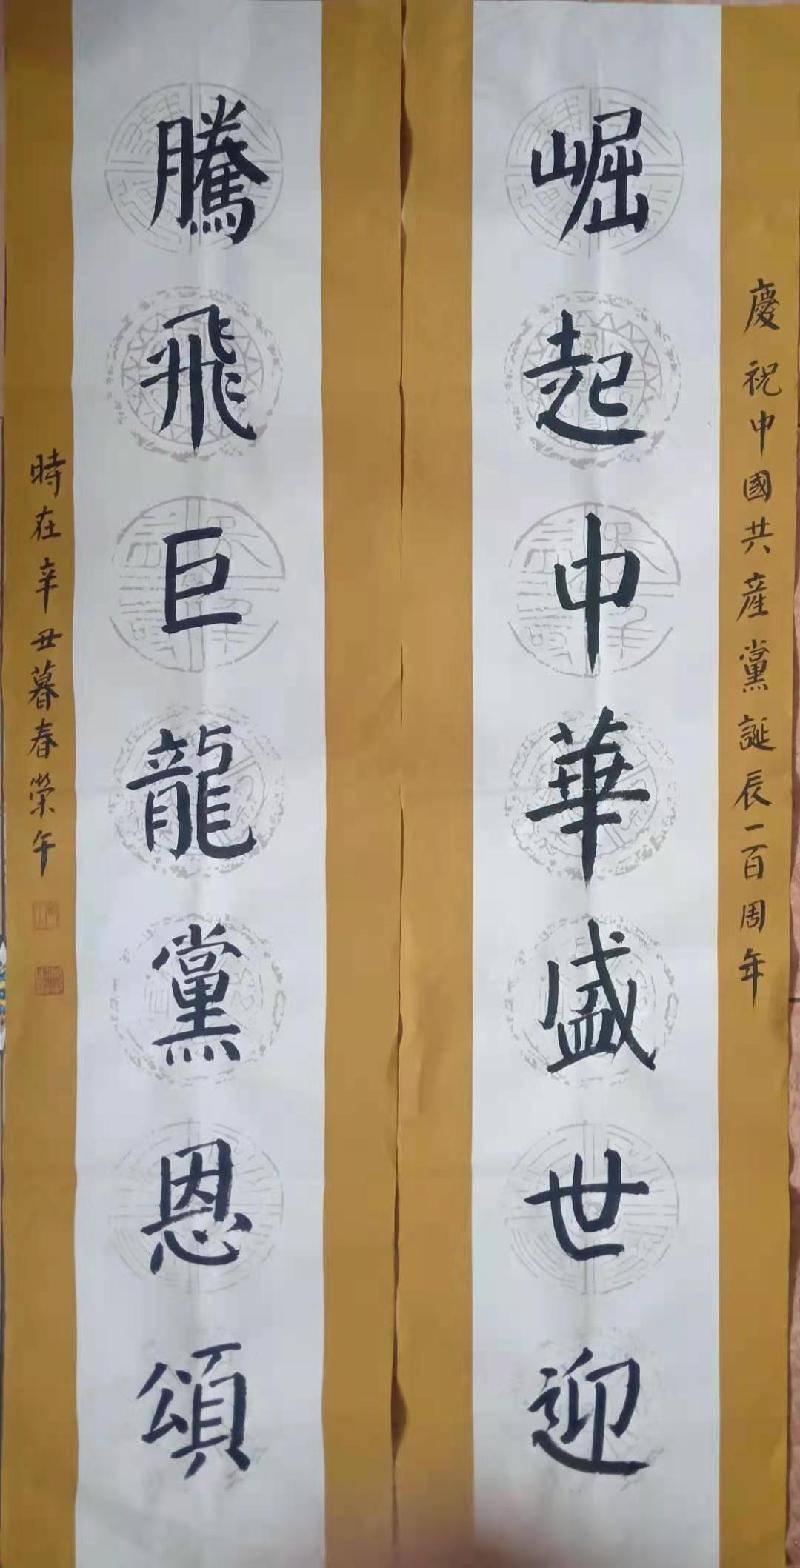 慶祝中國共產黨誕辰一百周年
崛起中華盛世迎
騰飛巨龍黨恩頌
時在辛丑暮春榮午